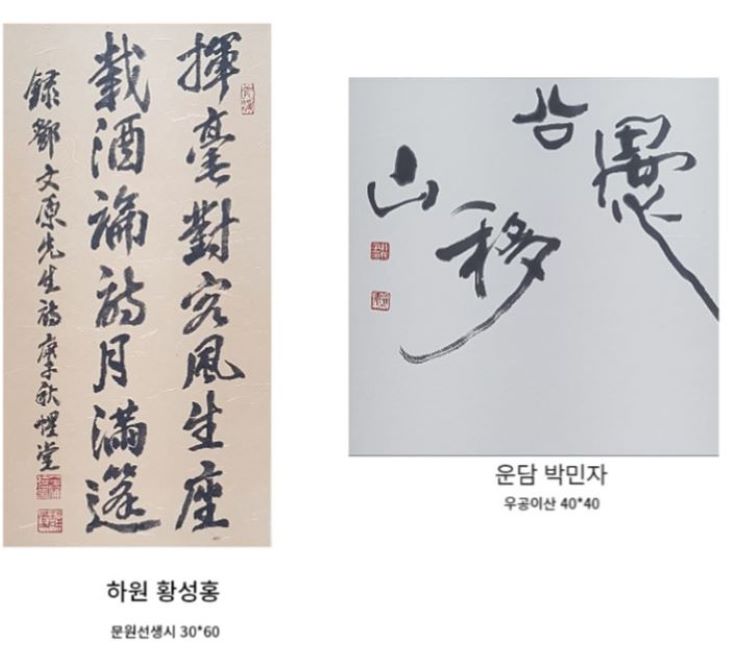 揮毫對客風生座
載酒論詩月滿篷
錄鄧文原先生詩 秋 惺堂
하원 황성홍
문원선생시 30*60
愚公移山
운담 박민자
우공이산 40*40